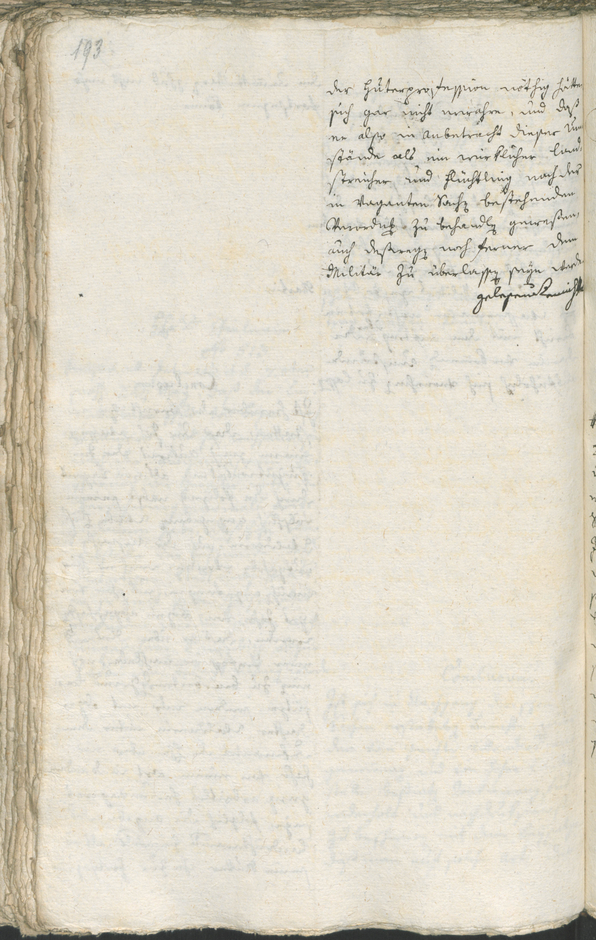 193.
der Huterprofession nöthig hätte
sich gar nicht erwehre, und daß
er also in Anbetracht dieser Um¬
stände als ein würklicher Land¬
streicher und Flüchtling nach der
in Vaganten Sach bestehenden
Verordnung zu behandlen gewesen,
auch deswegen noch ferner dem
Militär zu überlassen seyn werde